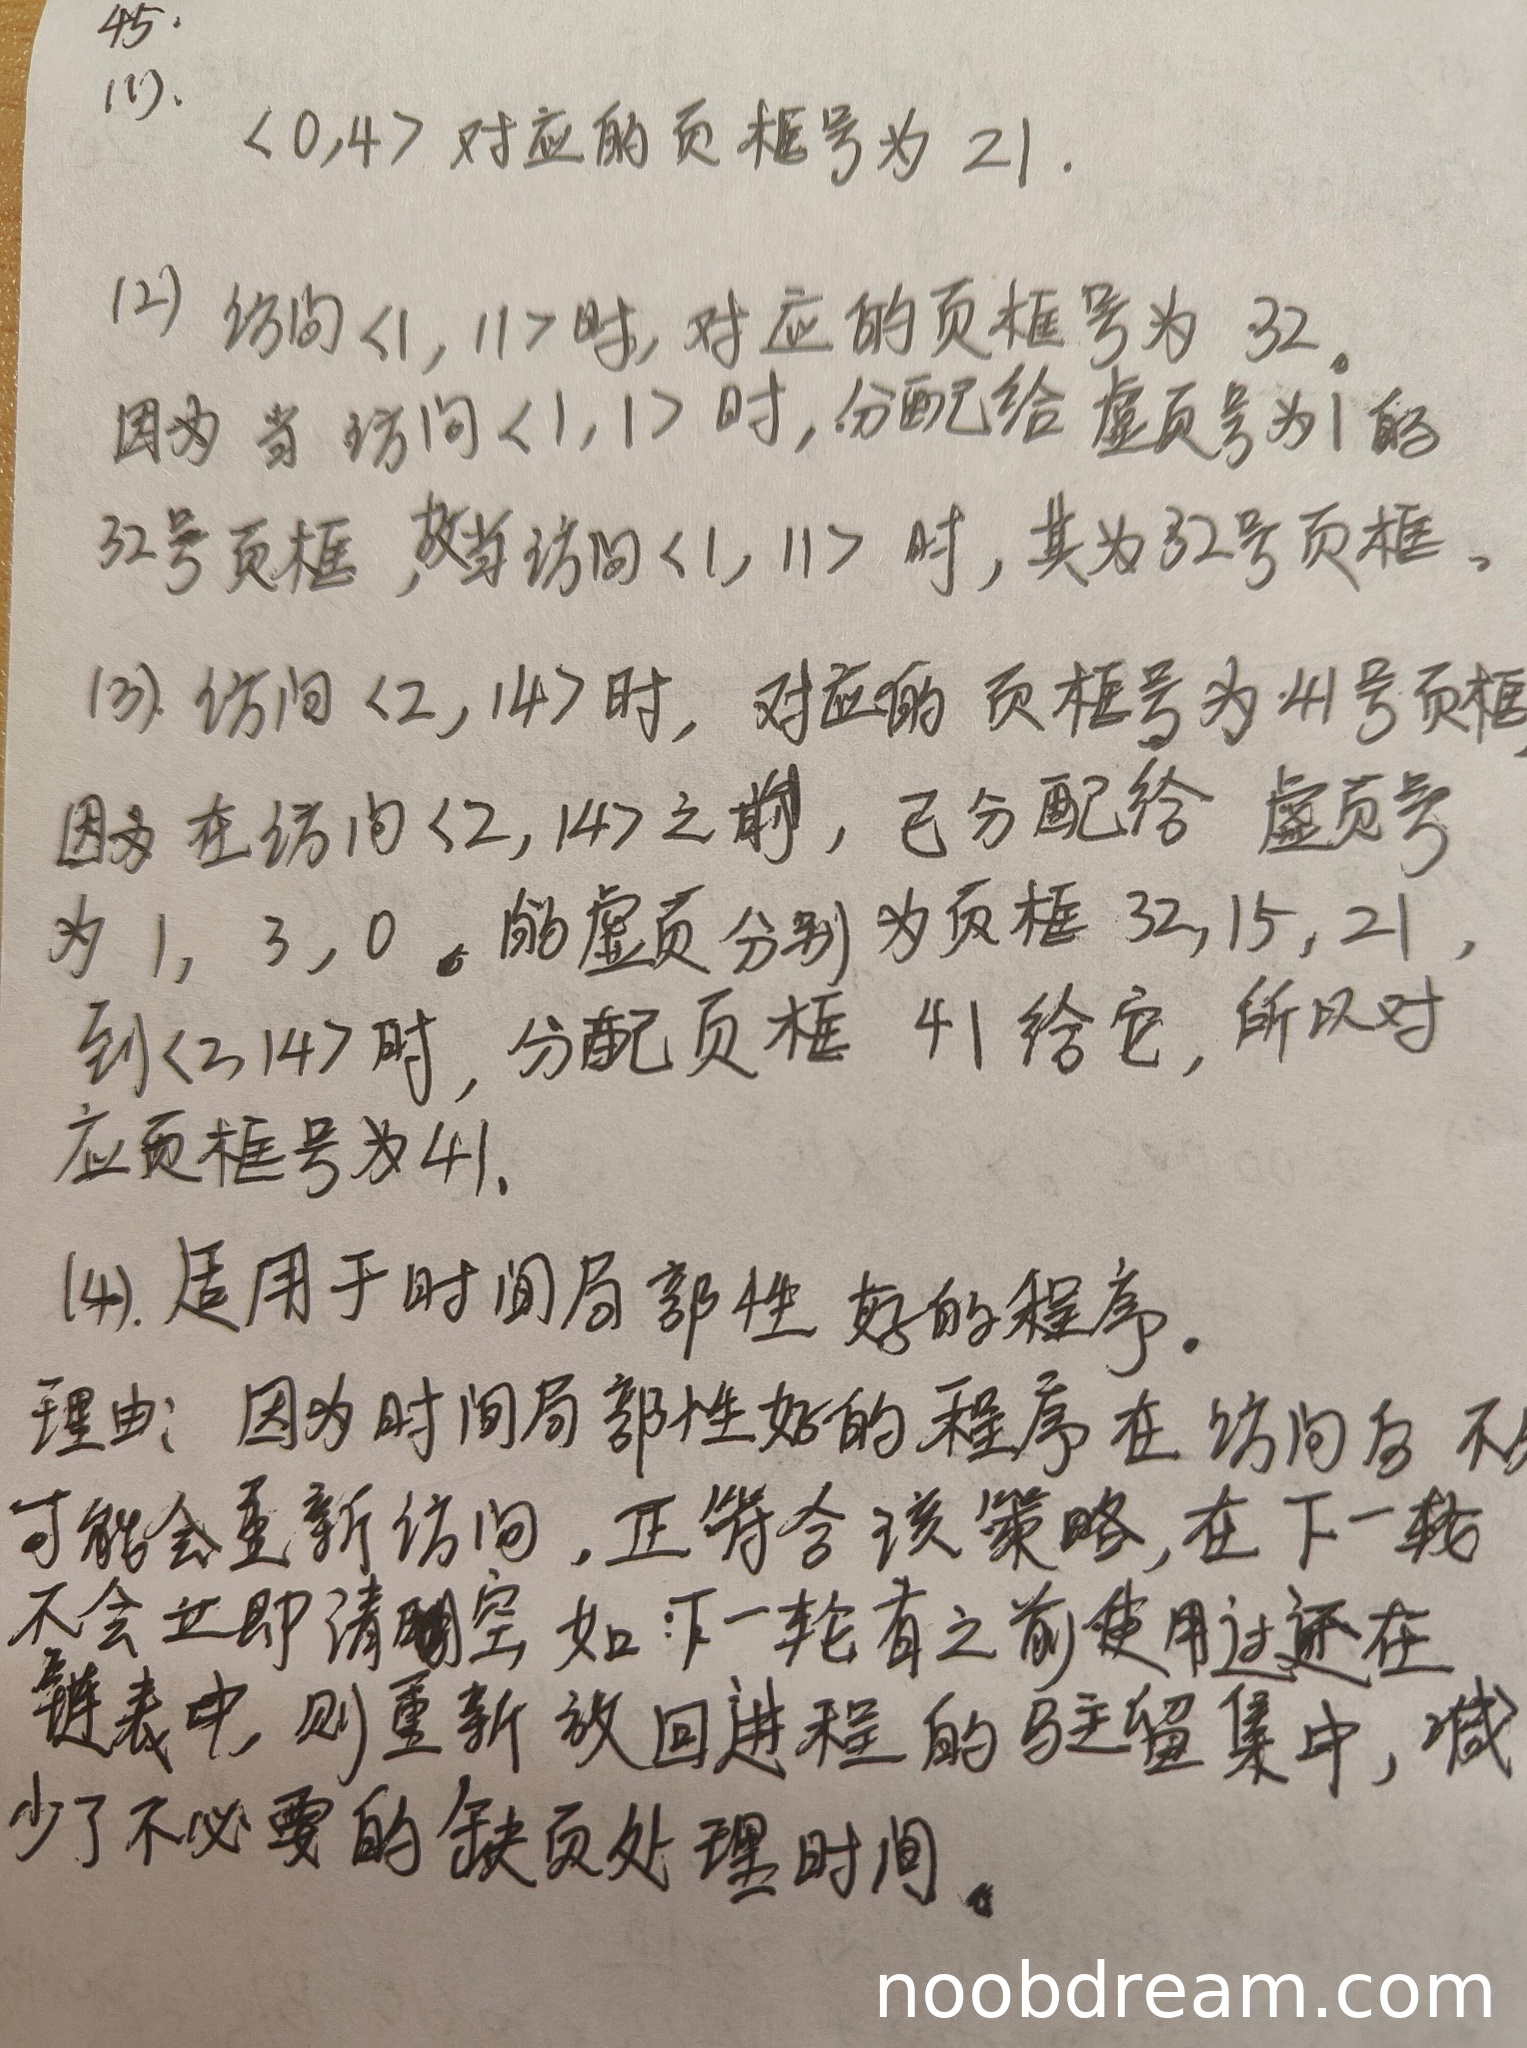 45.
(1).
<0,4> 对应的页框号为 21.
(2) 访问<1,11>时,对应的页框号为 32。
因为当访问<1,1>时,分配给虚页号为1的
32号页框,故当访问<1,11>时,其为32号页框。
(3). 访问<2,14>时,对应的页框号为41号页框,
因为在访问<2,14>之前,已分配给 虚页号
为 1, 3, 0 。的虚页分别为页框 32,15,21,
到<2,14>时,分配页框 41 给它,所以对
应页框号为41.
(4). 适用于时间局部性好的程序.
理由: 因为时间局部性好的程序在访问后不
可能会重新访问,正符合该策略,在下一轮
不会立即清空 如下一轮有之前使用过还在
链表中,则重新放回进程的驻留集中,减
少了不必要的缺页处理时间。
noobdream.com